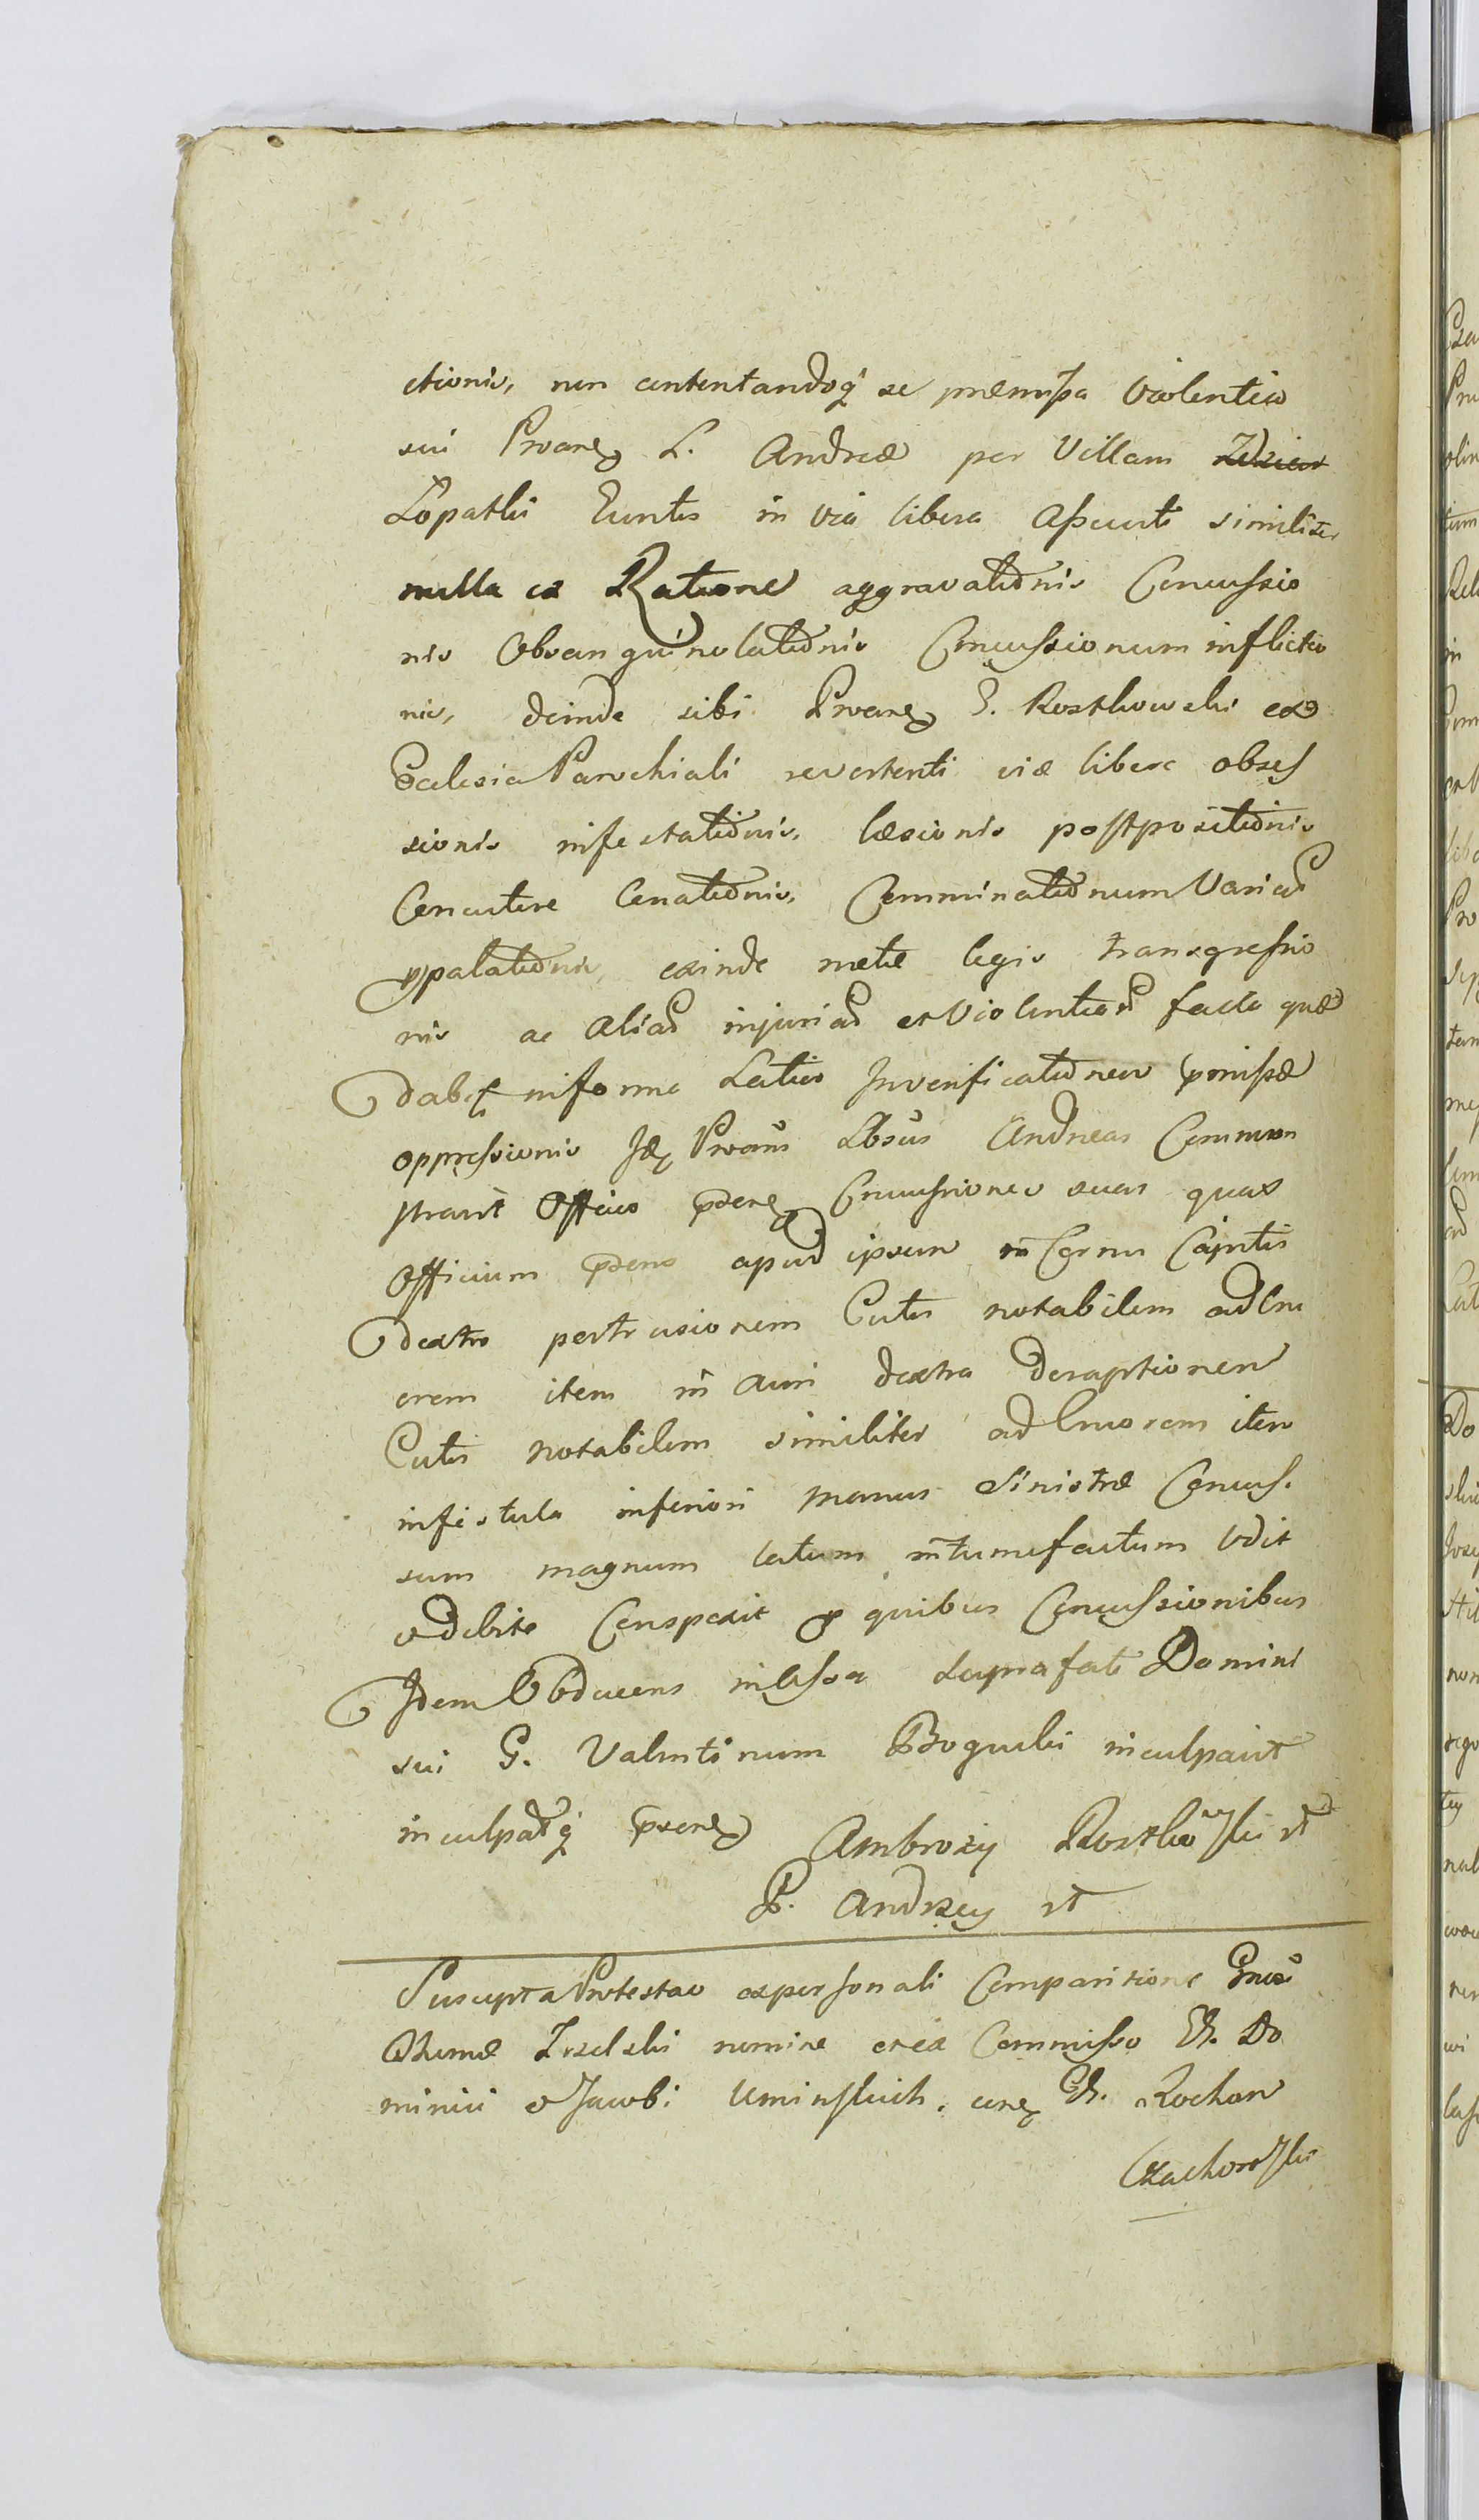 ctionis, non contentandoq́ se præmissa violentia
sui Proane L. Andreæ per Villam Zdzian
Łopatki Euntis in via libera Assecuti similiter
nulla ex Ratione aggravationis Concussio
nis Obsanguinolationis Concussionum inflictio
nis, deinde sibi Proane G. Rostkowski ex
Ecclesia Parochiali revertenti viæ liberæ obses
sionis infestationis, læsionis postpositionis
Concutere Conationis, Comminationum Variar
appalationis, exinde metæ legis transgressio
nis ac Aliar injuriar et Violentiar facto quæ
dabit in forma Latius In verificationem pmissæ
oppressionis Id Proans Lbsus Andreas Commons
travit Officio psene Concussiones suas quas
Officium psens apud ipsum in Cornu Capitis
dextro pertrusionem Cutis notabilem ad Cru
orem item in Auri dextra deraptionem
Cutis notabilem similiter ad Cruorem item
in fistula inferiori manus Sinistræ Concus.
sum magnum latum intumefactum vdit
et debite Conspexit p quibus Concussionibus
Idem Obducens in Causa suprafati Domini
sui G. Valentinum Boguski inculpavit
inculpatq́ psene Ambrozy Rostkowski m
P. Andrzey m
Suscepta Protestao ex personali Comparitione Gnosi
Thomæ Trzelski nomine et ex Commisso G. Do
minici et Jacobi Uminskich, cone G. Rochum
Czachorowski